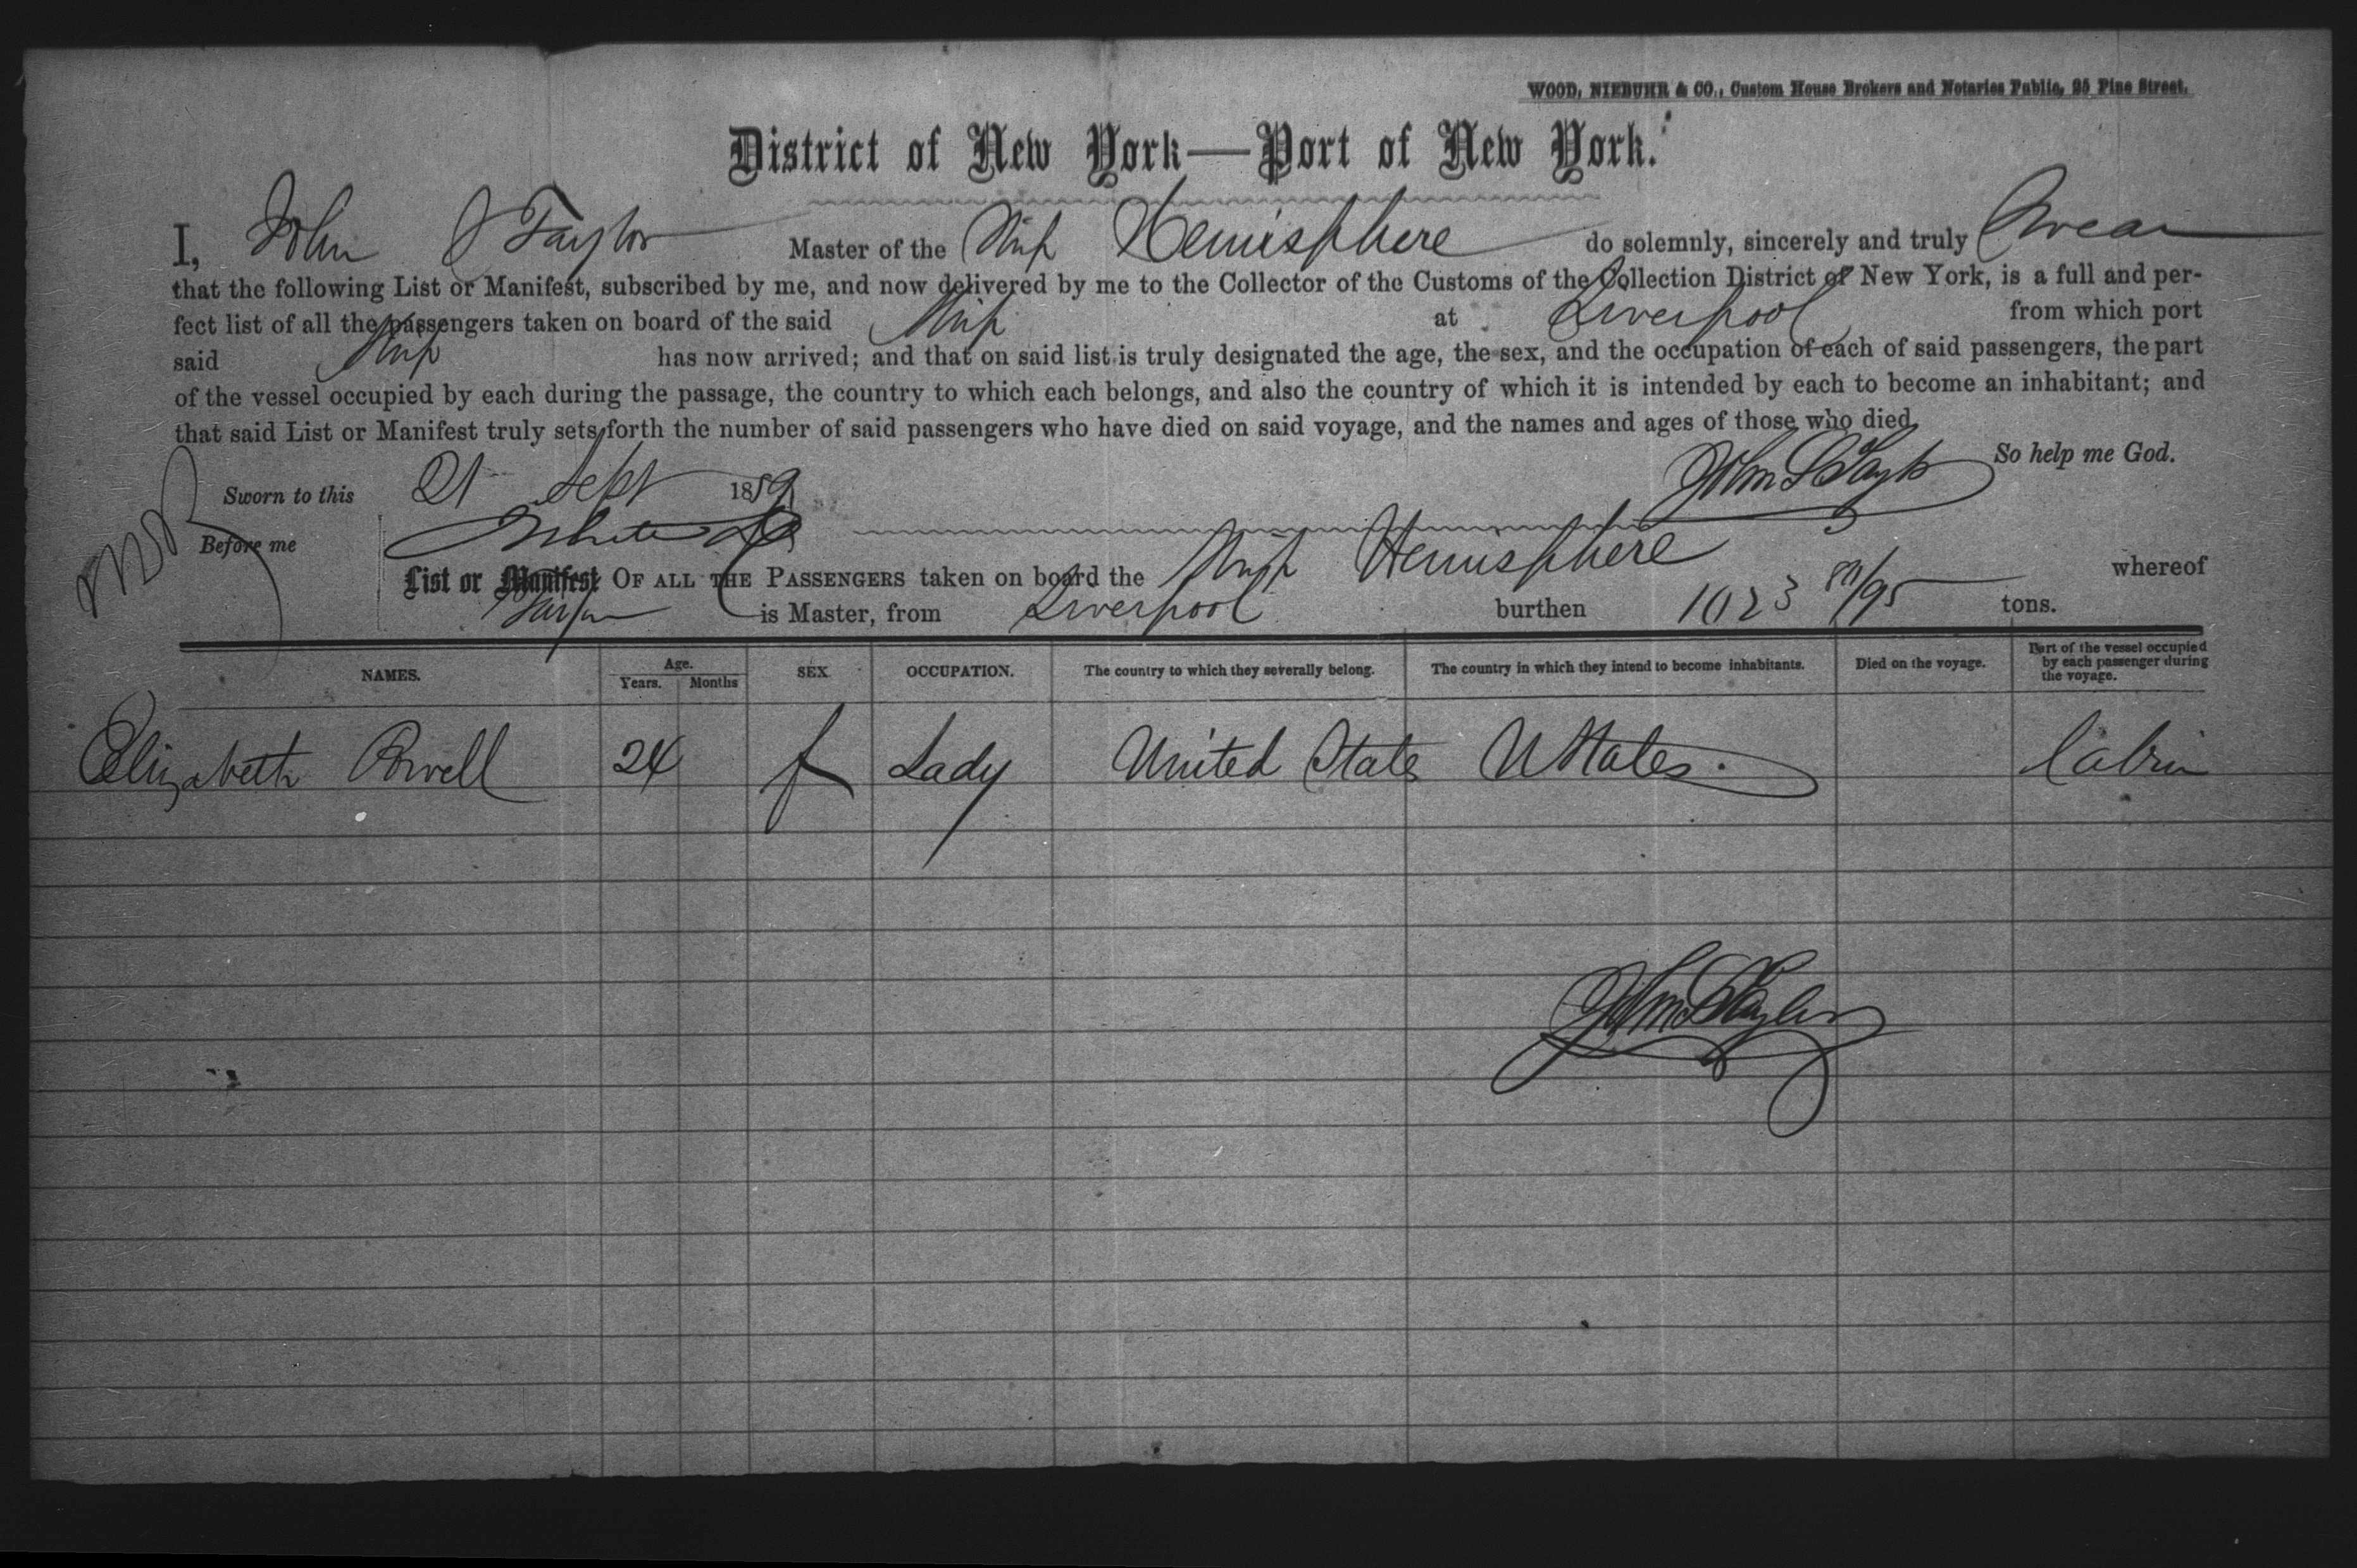 WOOD, NIEBUHR & CO., Custom House Brokers and Notaries Public, 95 Pine Street.
District of New York—Port of New York.
I, John S Taylor Master of the Ship Hemisphere do solemnly, sincerely and truly Swear
that the following List or Manifest, subscribed by me, and now delivered by me to the Collector of the Customs of the Collection District of New York, is a full and per-
fect list of all the passengers taken on board of the said Ship at Liverpool from which port
said Ship has now arrived; and that on said list is truly designated the age, the sex, and the occupation of each of said passengers, the part
of the vessel occupied by each during the passage, the country to which each belongs, and also the country of which it is intended by each to become an inhabitant; and
that said List or Manifest truly sets forth the number of said passengers who have died on said voyage, and the names and ages of those who died.
So help me God.
Sworn to this 21 Sept 1859 John S Taylor
Before me
List or Manifest OF ALL THE PASSENGERS taken on board the Ship Hemisphere whereof
Taylor is Master, from Liverpool burthen 1023 80/95 tons.
NAMES. Age. Years. Months SEX OCCUPATION. The country to which they severally belong. The country in which they intend to become inhabitants. Died on the voyage. Part of the vessel occupied by each passenger during the voyage.
Elizabeth 24 f Lady United States UStates. Cabin
John S Taylor